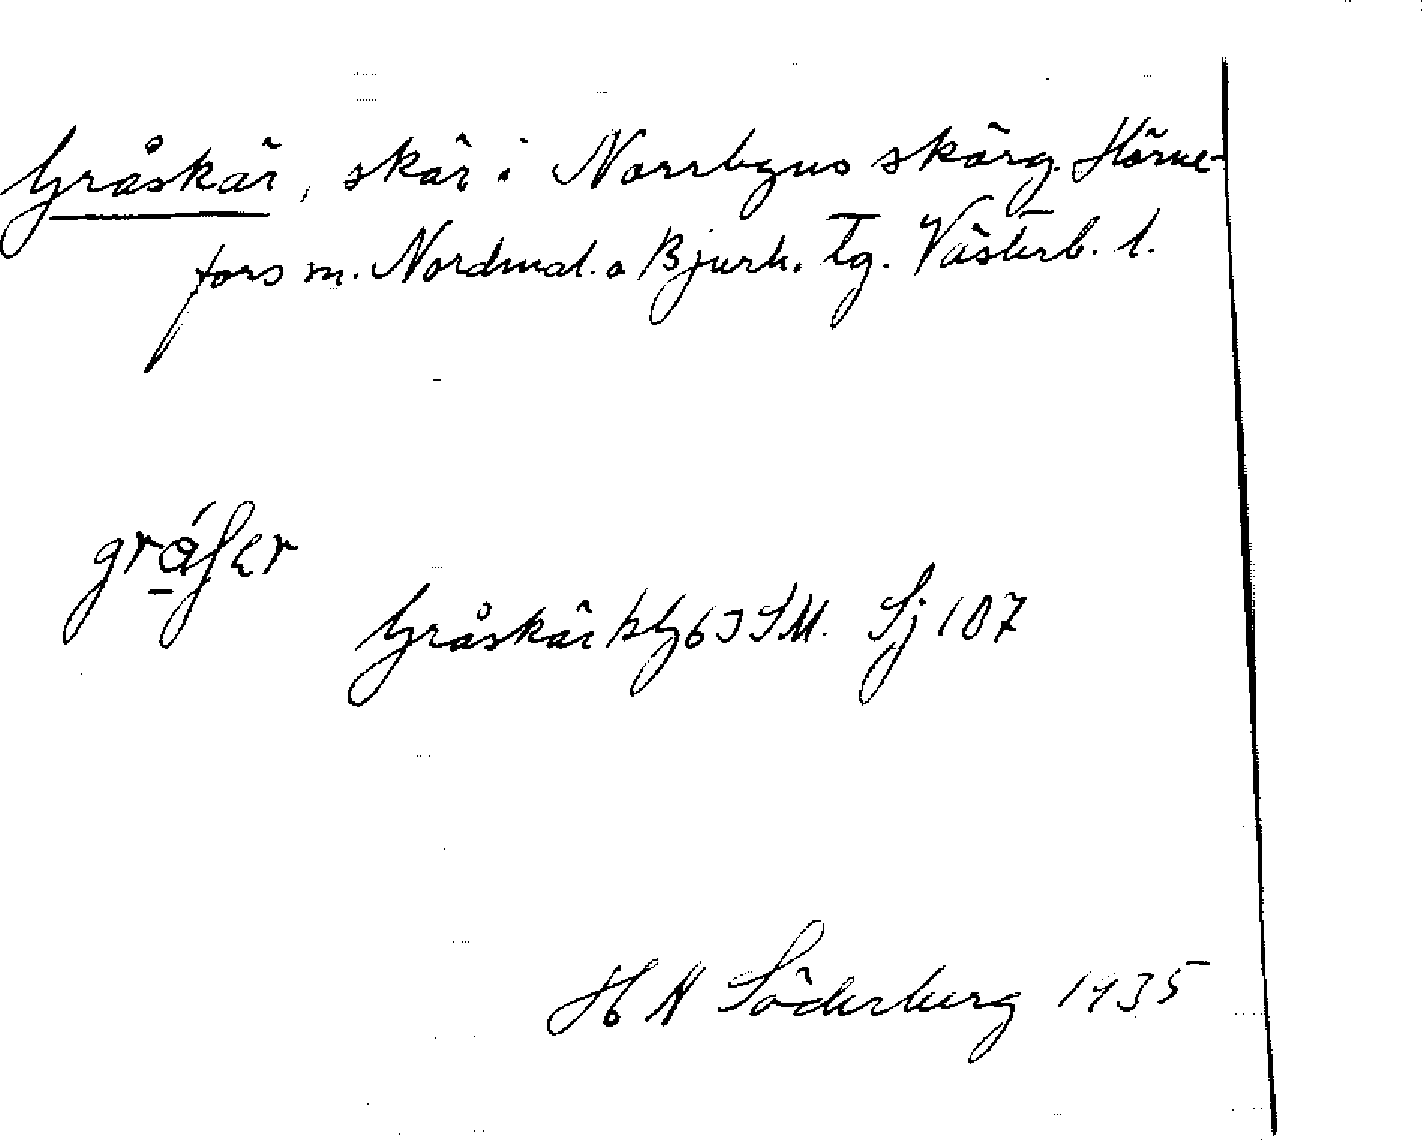 Gråskär, skär i Norrbyns skärg. Hörne-
fors m. Nordmal. o Bjurh. Tg. Västerb. l.
Gråskär bl 63 SM. Sj 107
H N Söderberg 1935